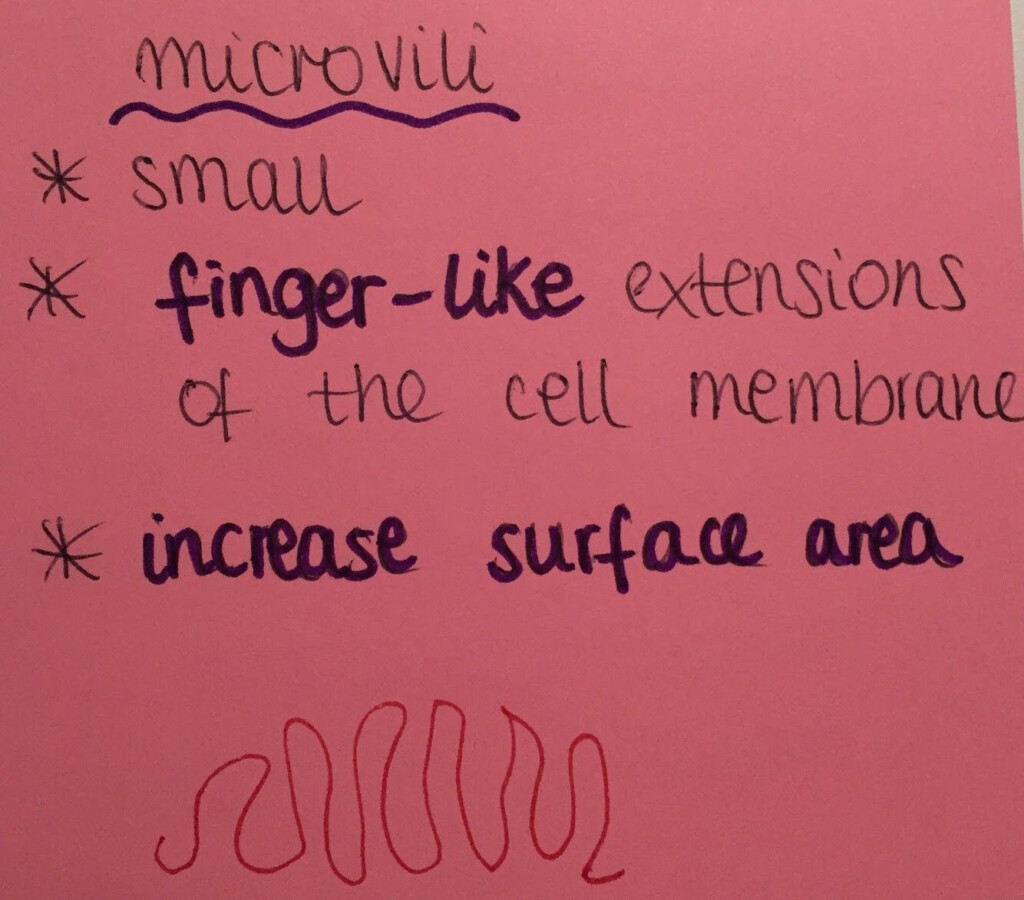 microvili
* small
* finger-like extensions
of the cell membrane
* increase surface area